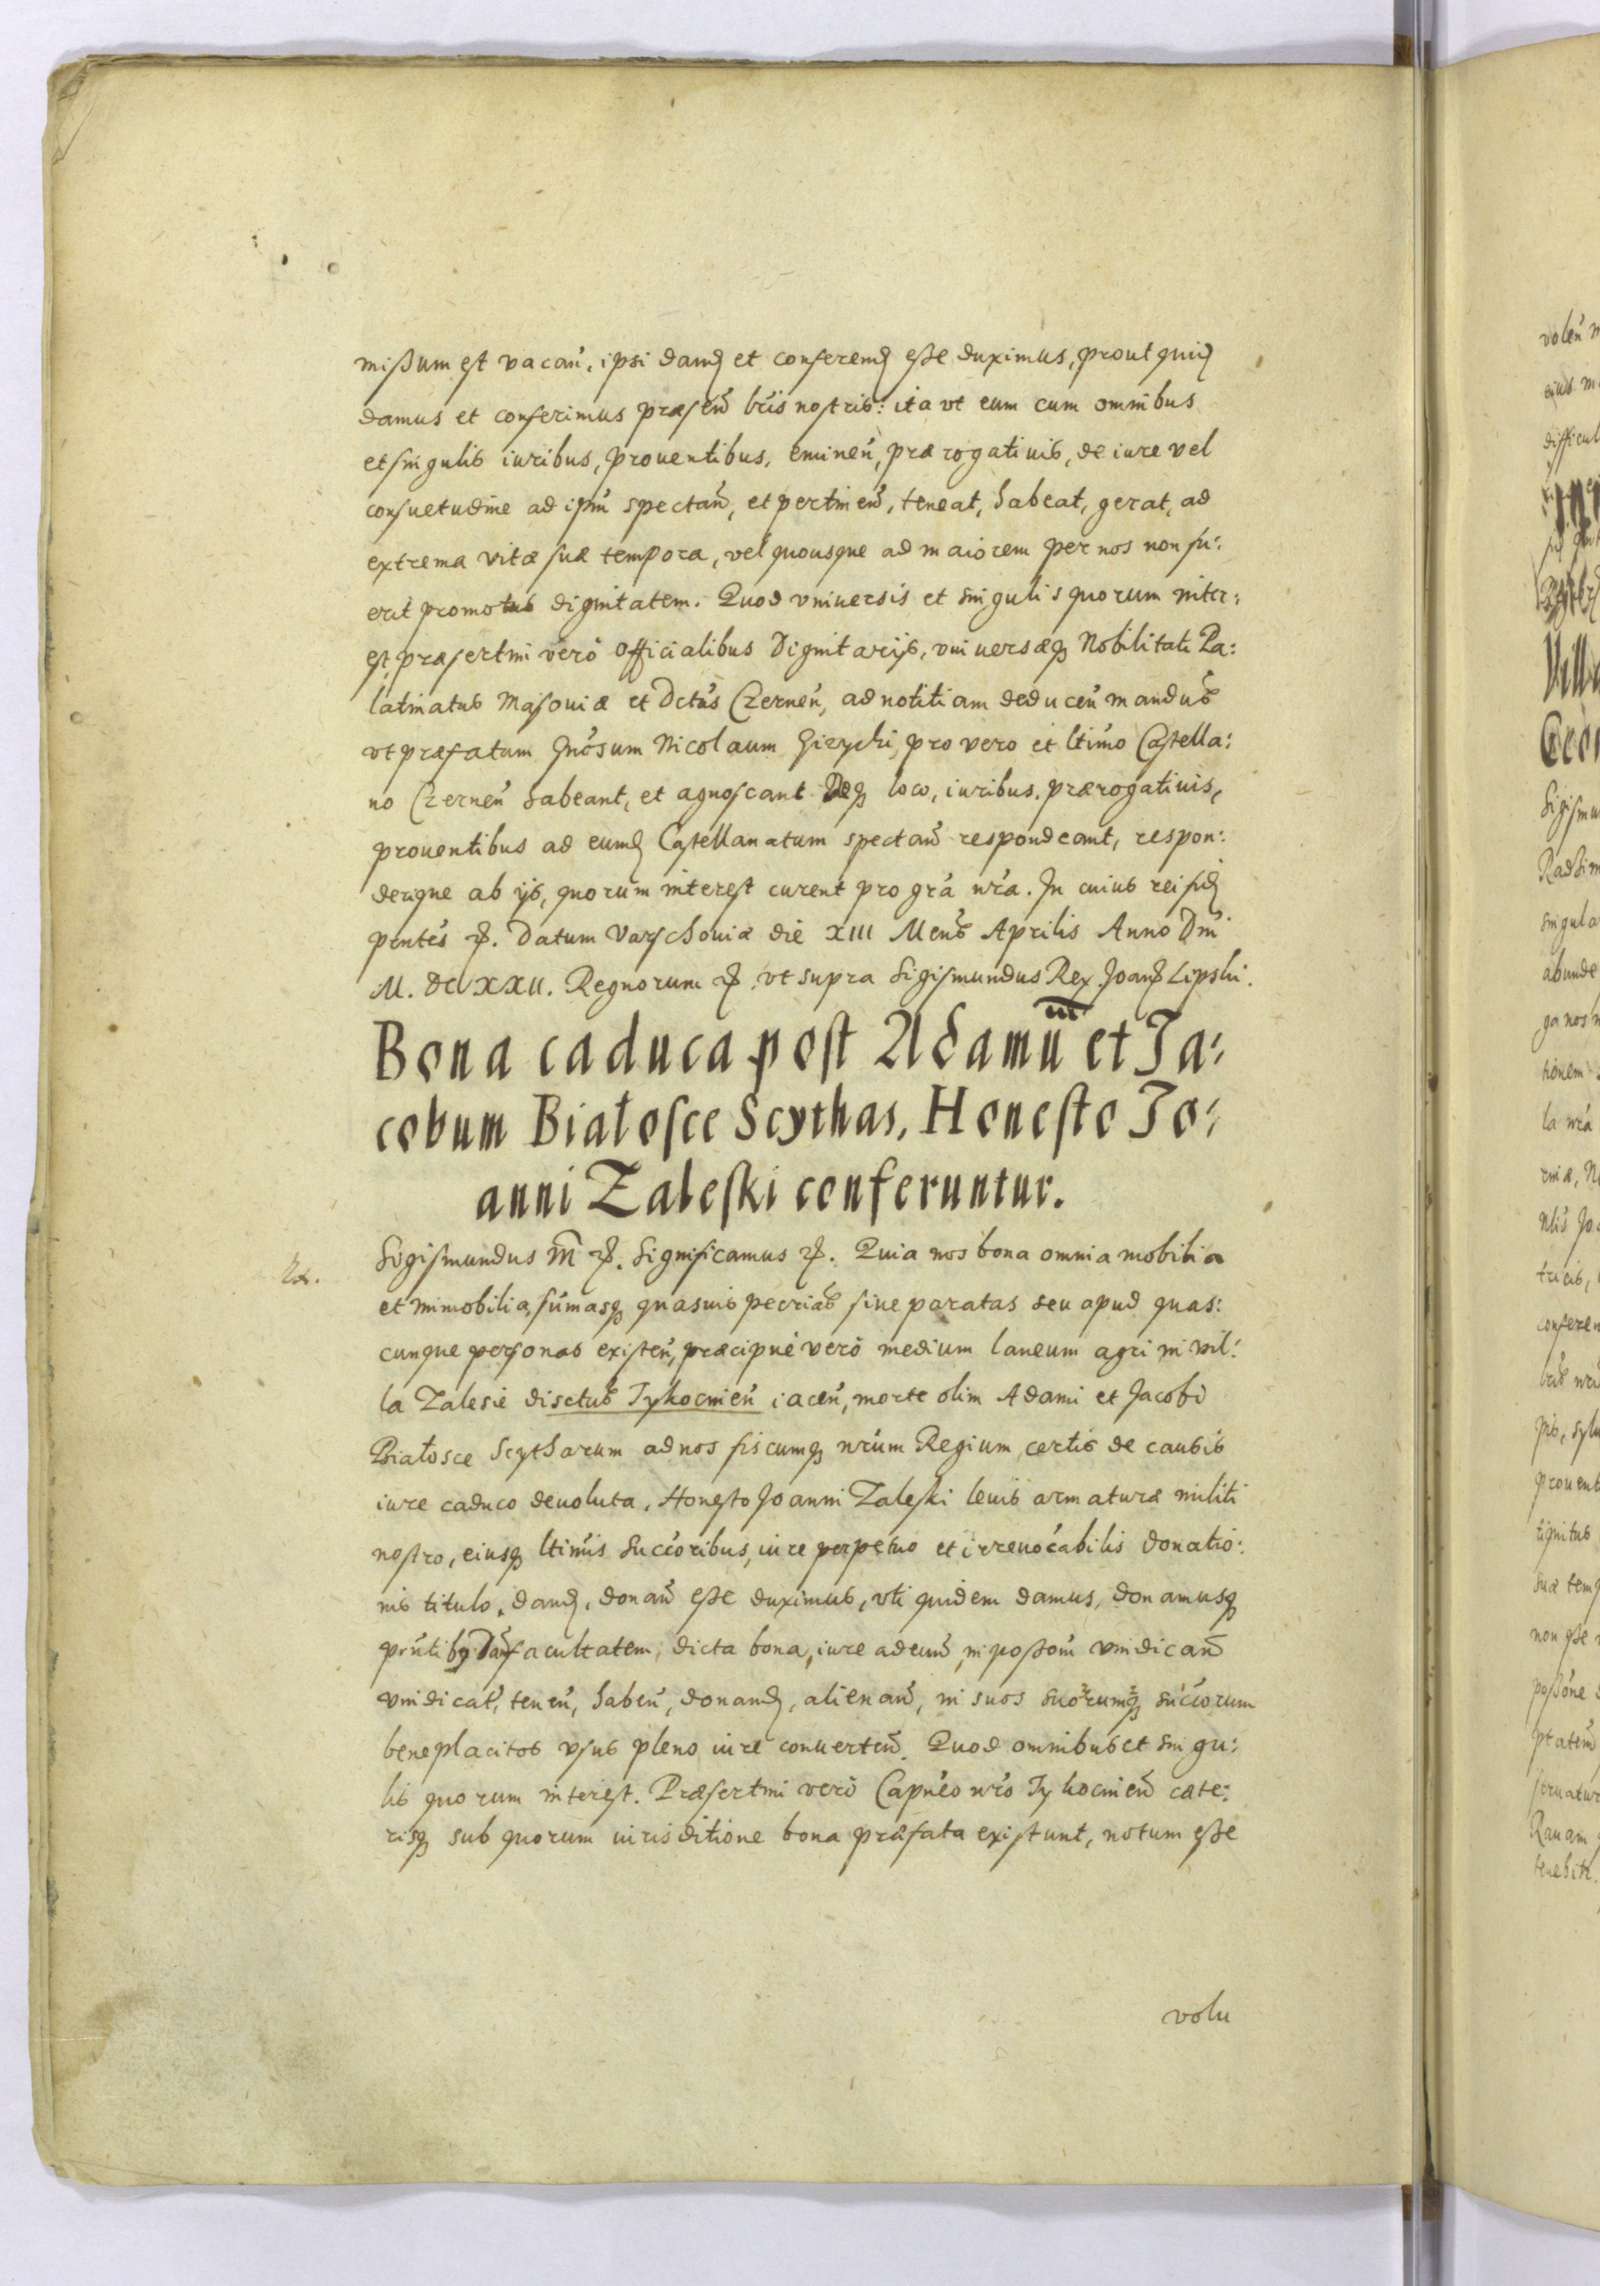 missum est vacan̄, ipsi dand et conferend esse duximus, prout quid
damus et conferimus præsen̄ lr̄is nostris: ita vt eum cum omnibus
et singulis iuribus, prouentibus, eminen̄, prærogatiuis, de iure vel
consuetudine ad ipm̄ spectan̄, et pertinen̄, teneat, habeat, gerat, ad
extrema vitæ suæ tempora, vel quousque ad maiorem per nos non fu:
erit promotus dignitatem. Quod vniuersis et singulis quorum inter:
est, præsertim verò Officialibus Dignitarijs, vniuersæq Nobilitati Pa:
latinatus Masouiæ et Dctūs Czernen̄, ad notitiam deducen̄ mandus̄
vt præfatum Gn̄osum Nicolaum Girzycki, pro vero et ltīmo Castella:
no Czernen̄ habeant, et agnoscant Deq loco, iuribus, prærogatiuis,
prouentibus ad eumd Castellanatum spectan̄ respondeant, respon:
derique ab ijs, quorum interest curent pro gr̄a nr̄a. In cuius rei fid
pn̄tes &. Datum Varschouiæ die XIII Mens̄ Aprilis Anno Dn̄i
M. DC XXII. Regnorum &. vt supra Sigismundus Rex. Joan Lipski.
Bona caduca post Adamū m̄ et Ja:
cobum Białosce Scythas, Honesto Jo:
anni Zaleski conferuntur.
Sigismundus III &. Significamus &. Quia nos bona omnia mobilia
et immobilia, sūmasq quasuis pecrias̄ siue paratas seu apud quas:
cunque personas existen̄, præcipuè verò medium laneum agri in vil:
la Zalesie disctus̄ Tykocinien̄ iacen̄, morte olim Adami et Jacobi
Białosce Scytharum ad nos fiscumq nr̄um Regium, certis de causis
iure caduco deuoluta, Honesto Joanni Zaleski leuis armaturæ militi
nostro, eiusq ltīmis succoribus, iure perpetuo et irreuocabilis donatio:
nis titulo, dand, donan̄ esse duximus, vti quidem damus, donamusq
prn̄tibq Dan̄ facultatem, dicta bona, iure ad eum̄, in posson̄ vindican̄
vindicat̄, tenen̄, haben̄, donand, alienan̄, in suos suorumq succorum
beneplacitos vsus pleno iure conuerten̄. Quod omnibus et singu:
lis quorum interest. Præsertim verò Capneo nr̄o Tykocinien̄ cæte:
risq sub quorum iurisditione bona præfata existunt, notum esse
volu